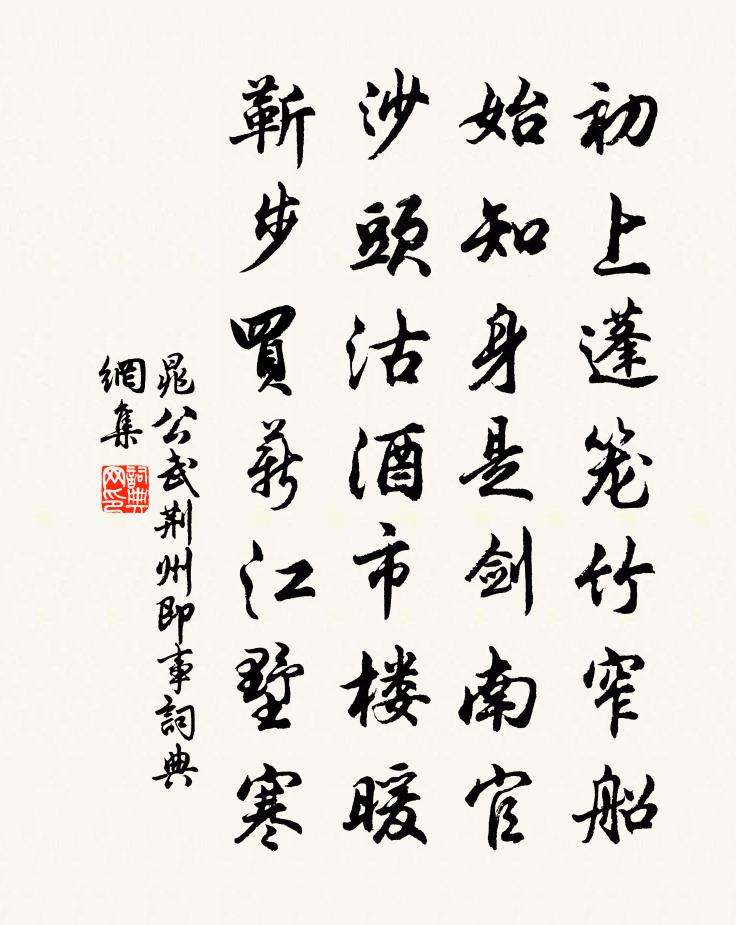 初上蓬笼竹窄船
始知身是剑南官
沙頭沽酒市楼暖
蕲步買薪江墅寒
晁公武荆州即事詞典
網集
詞典
网印